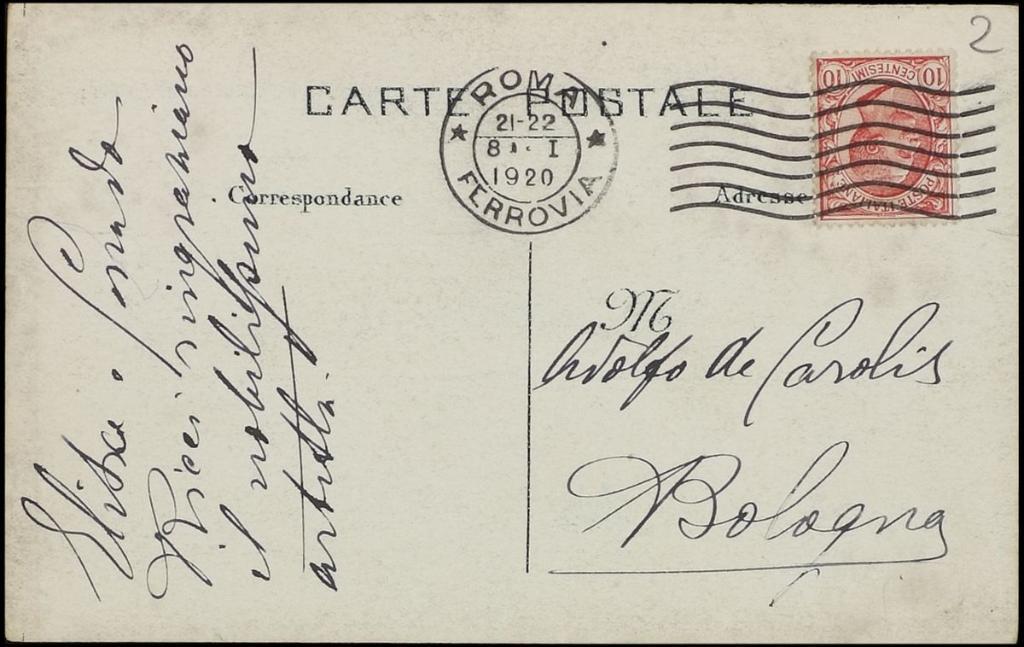 2
CARTE POSTALE
ROMA
21-22
8 I
1920
FERROVIA
10 CENTESIMI 10
POSTE ITALIANE
Correspondance
Adresse
M
Adolfo de Carolis
Bologna
Corrado
Ricci ringraziano
il nobilissimo
artista